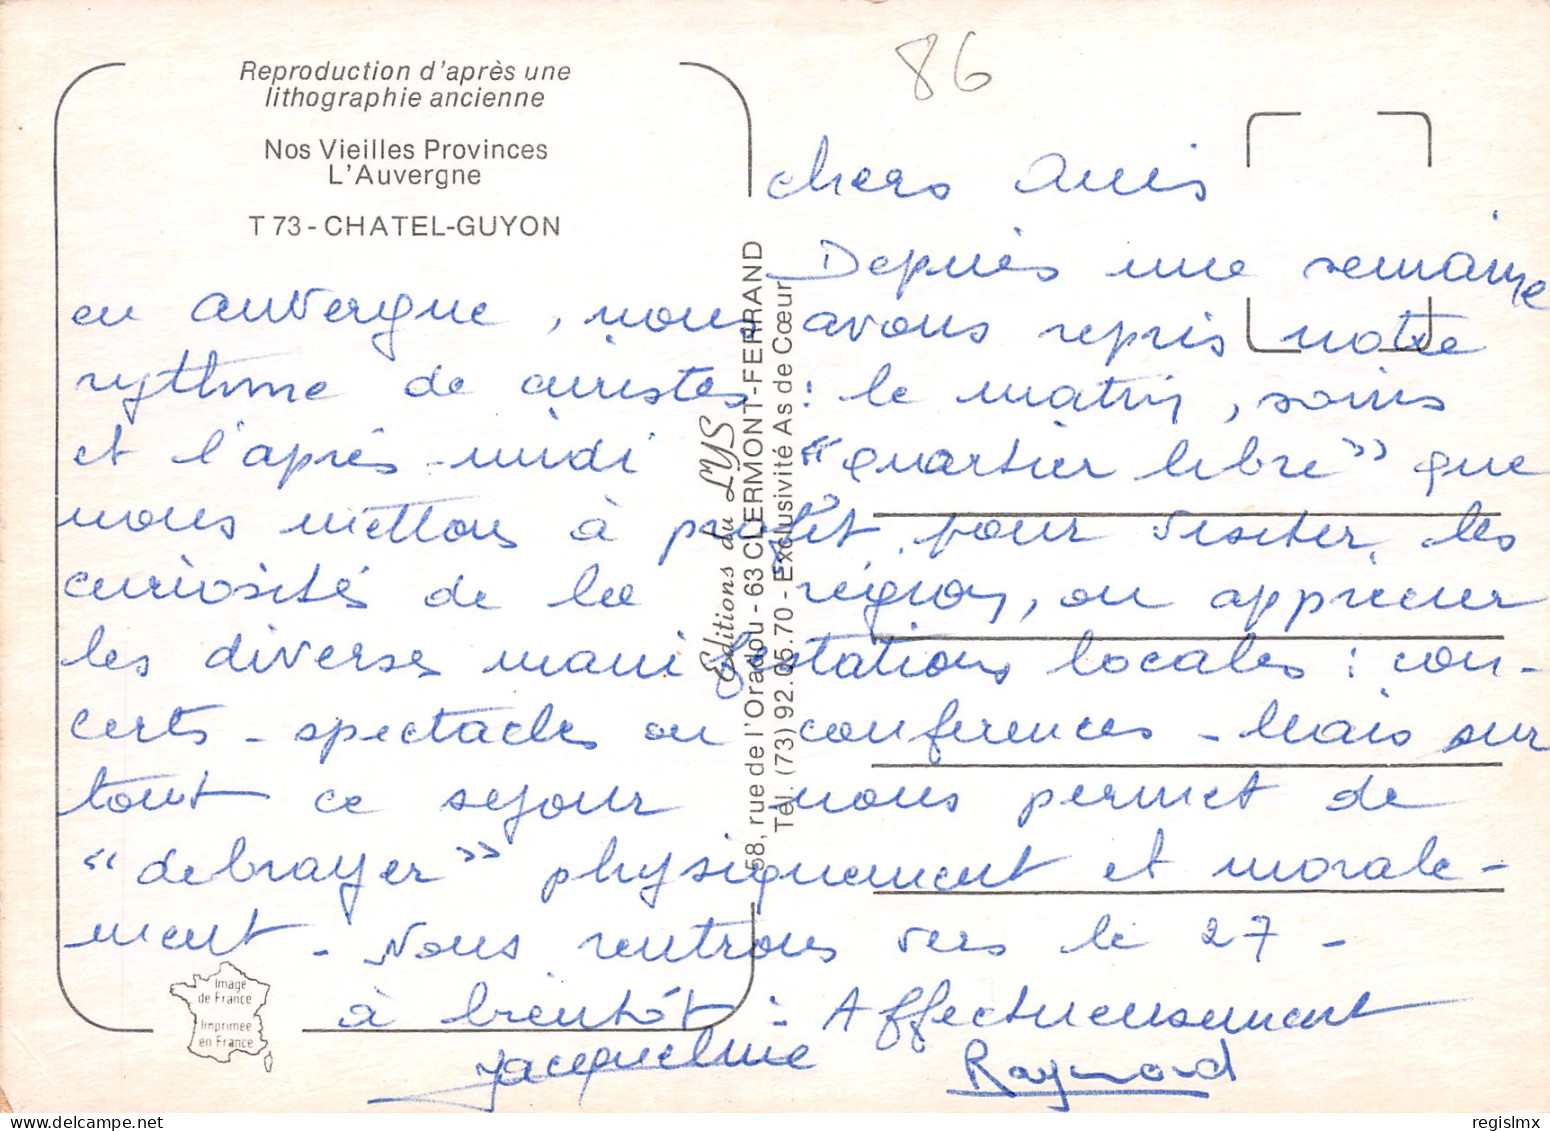 86
Reproduction d'après une
lithographie ancienne
Nos Vieilles Provinces
L'Auvergne
T 73 - CHATEL-GUYON
Editions du LYS
58, rue de l'Oradou - 63 CLERMONT-FERRAND
Tél. (73) 92.05.70 - Exclusivité As de Cœur
chers amis
Depuis une semaine
en auvergne, nous avons repris notre
rythme de curistes : le matin, soins
et l'après-midi "quartier libre" que
nous mettons à profit pour visiter les
curiosités de la région, ou apprécier
les diverses manifestations locales : con-
certs - spectacles ou conférences - Mais sur
tout ce séjour nous permet de
"débrayer" physiquement et morale-
ment - Nous rentrons vers le 27 -
à bientôt - Affectueusement
Jacqueline Raymond
Image
de France
Imprimée
en France
regislmx